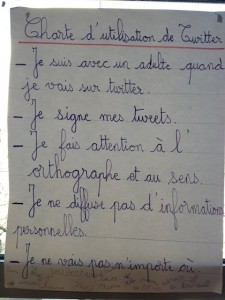 Charte d'utilisation de Twitter
– Je suis avec un adulte quand
je vais sur twitter.
– Je signe mes tweets.
– Je fais attention à l'
orthographe et au sens.
– Je ne diffuse pas d'informations
personnelles.
– Je ne vais pas n'importe où